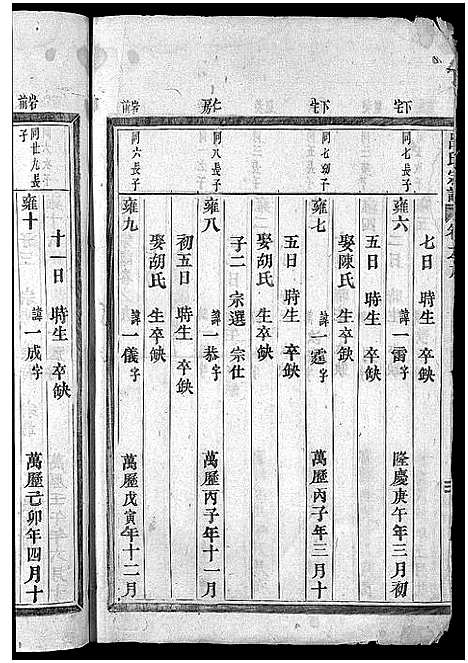 下宅
同七長子
雍六 諱一雷字 隆慶庚午年三月初
七日 時生 卒缺
娶陳氏 生卒缺
下宅
同七幼子
雍七 諱一霆字 萬歷丙子年三月十
五日 時生 卒缺
娶胡氏 生卒缺
子二 宗選 宗仕
仁房
同八長子
雍八 諱一恭字 萬歷丙子年十一月
初五日 時生 卒缺
娶胡氏 生卒缺
岩前
同六長子
雍九 諱一儀字 萬歷戊寅年十二月
十一日 時生 卒缺
岩前
同廿九長子
雍十 諱一成字 萬歷己卯年四月十